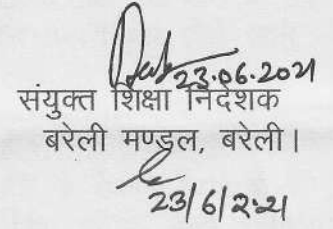 23.06.2021
संयुक्त शिक्षा निदेशक
बरेली मण्डल, बरेली।
23/6/2021